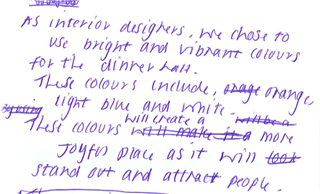 As interior designers, we chose to
use bright and vibrant colours
for the dinner hall.
These colours include, orange orange,
light blue and white. will be a
These colours will create a will make it a more
Joyful place as it will look
stand out and attract people.